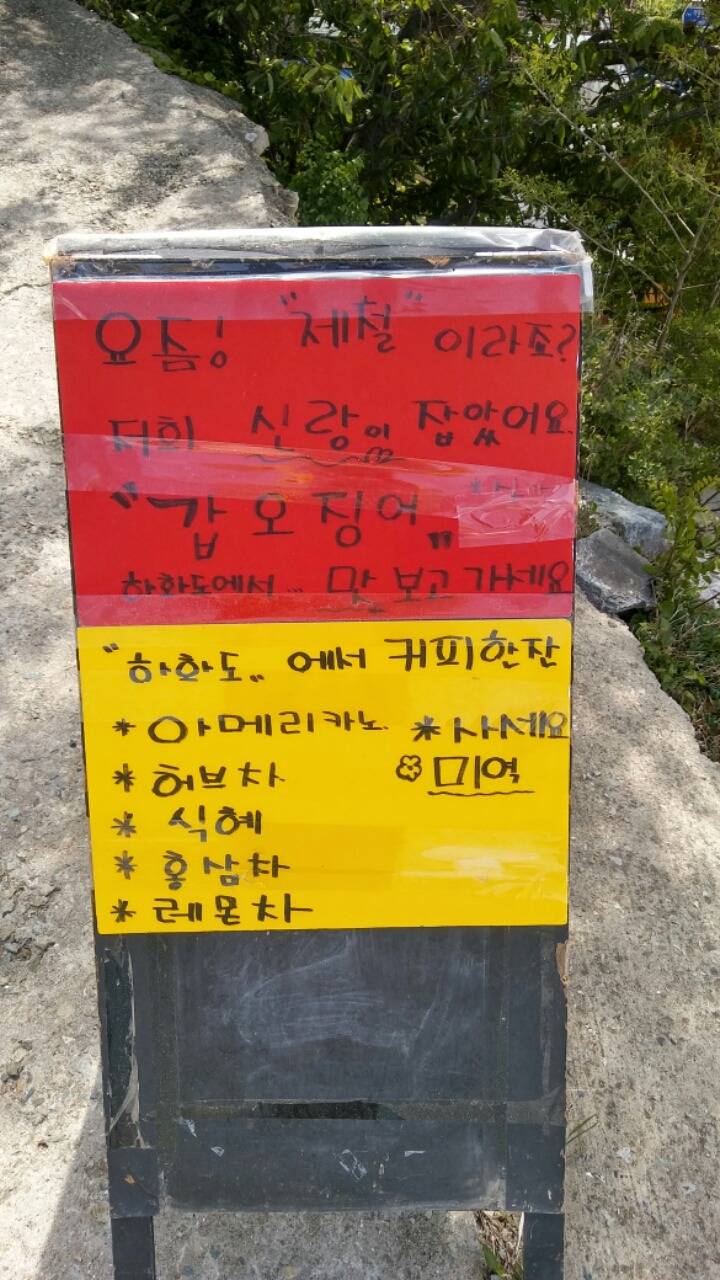 요즘! "제철" 이라죠?
저희 신랑이 잡았어요.
"갑오징어"
하화도에서... 맛보고 가세요
"하화도" 에서 커피한잔
* 아메리카노 * 사세요
* 허브차 미역
* 식혜
* 홍삼차
* 레몬차